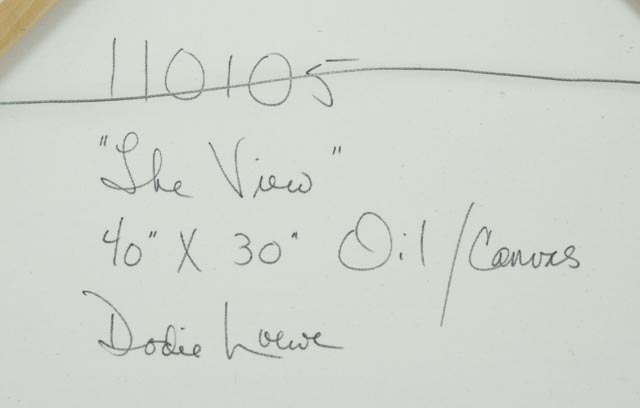 110105
"The View"
40" X 30" Oil/Canvas
Dodie Loewe